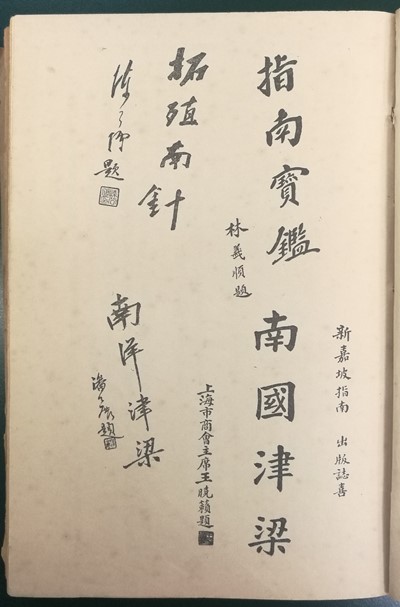 新嘉坡指南 出版誌喜
指南寶鑑
林義順題
南國津梁
上海市商會主席王曉籟題
拓殖南針
題
南洋津梁
潘公展題